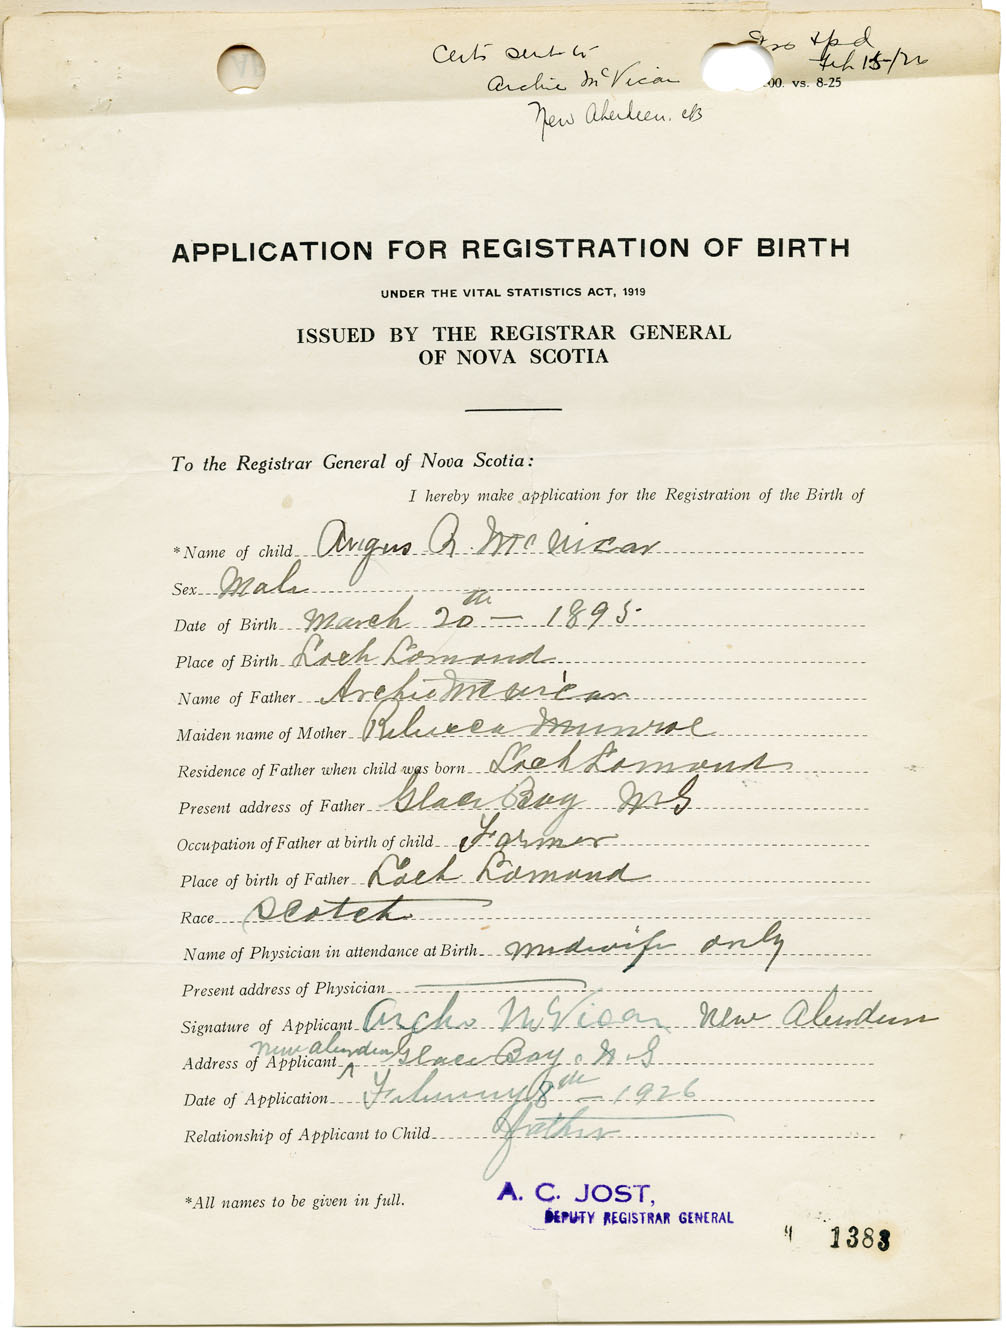 Cert. sent to
Archie McVicar
New Aberdeen. CB
Feb 15-/26
00. vs. 8-25
APPLICATION FOR REGISTRATION OF BIRTH
UNDER THE VITAL STATISTICS ACT, 1919
ISSUED BY THE REGISTRAR GENERAL
OF NOVA SCOTIA
To the Registrar General of Nova Scotia:
I hereby make application for the Registration of the Birth of
*Name of child Angus R. McVicar
Sex Male
Date of Birth March 20th — 1895
Place of Birth Loch Lomond
Name of Father Archie McVicar
Maiden name of Mother Rebecca Munroe
Residence of Father when child was born Loch Lomond
Present address of Father Glace Bay N S
Occupation of Father at birth of child Farmer
Place of birth of Father Loch Lomond
Race Scotch
Name of Physician in attendance at Birth midwife only
Present address of Physician
Signature of Applicant Archie McVicar New Aberdeen
Address of Applicant New Aberdeen Glace Bay, N S
Date of Application February 8th — 1926
Relationship of Applicant to Child father
*All names to be given in full.
A. C. JOST,
DEPUTY REGISTRAR GENERAL
" 1383